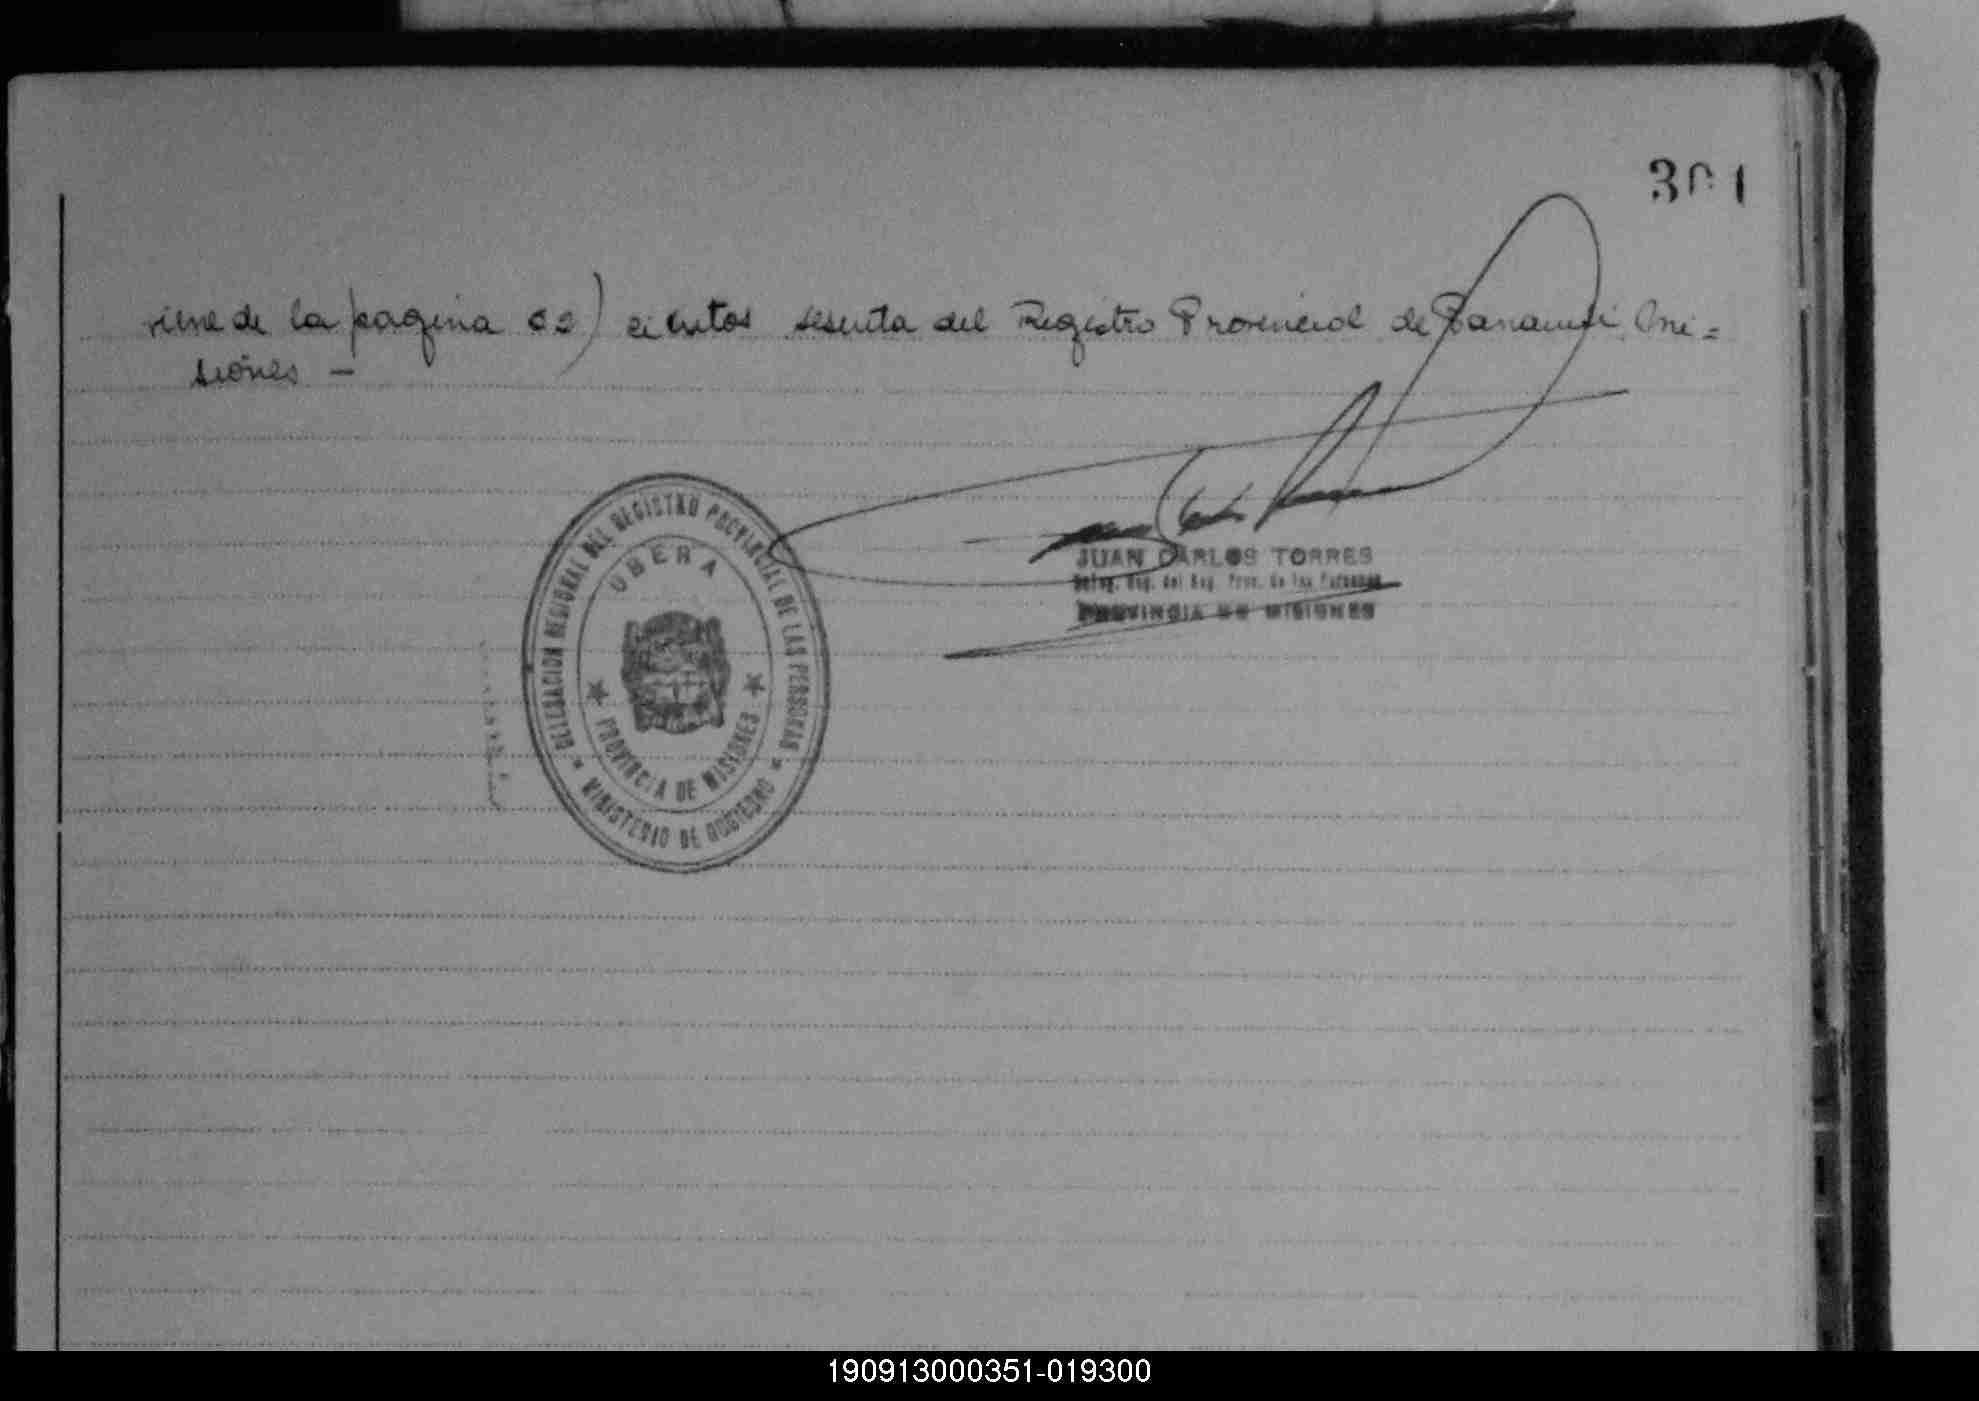 301
viene de la pagina 62) cientos sesenta del Registro Provincial de Panambi Mi=
siones —
DELEGACION REGIONAL DEL REGISTRO PROVINCIAL DE LAS PERSONAS
OBERA
PROVINCIA DE MISIONES
MINISTERIO DE GOBIERNO
JUAN CARLOS TORRES
Deleg. Reg. del Reg. Prov. de las Personas
PROVINCIA DE MISIONES
190913000351-019300